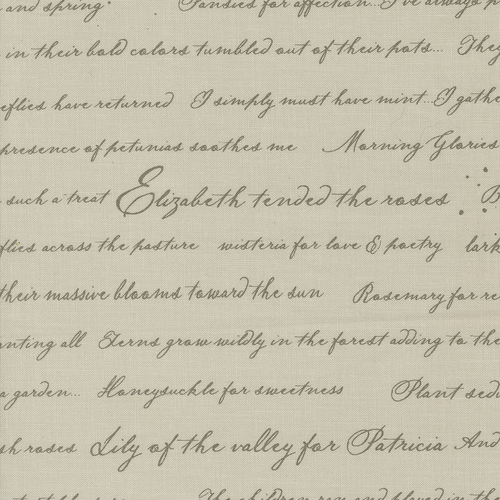 and spring. Pansies for affection... I've always
in their bold colors tumbled out of their pots... They
flies have returned I simply must have mint... I gathe
presence of petunias soothes me Morning Glories
such a treat Elizabeth tended the roses B
flies across the pasture wisteria for love & poetry lark
their massive blooms toward the sun Rosemary for re
nting all Ferns grow wildly in the forest adding to the
a garden... Honeysuckle for sweetness Plant sed
sh roses Lily of the valley for Patricia And
The children ran and played in the